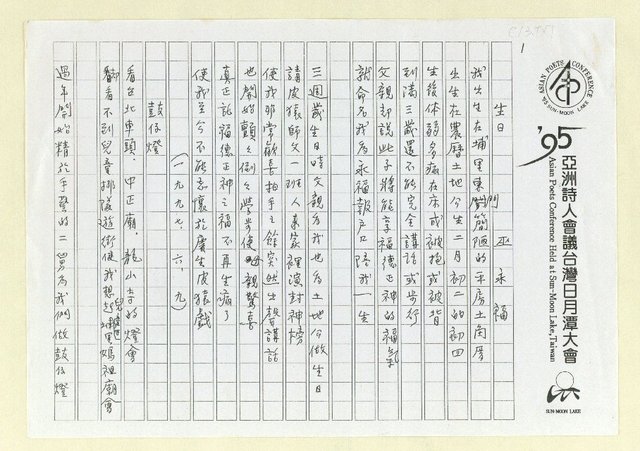 C/3.TXT
1
ASIAN POETS CONFERENCE
'95 SUN-MOON LAKE
'95 亞洲詩人會議台灣日月潭大會
Asian Poets Conference Held at Sun-Moon Lake, Taiwan
SUN-MOON LAKE
生日
巫永福
我出生在埔里東門簡陋的平房土角厝
出生在農曆土地公生二月初二的初四
生後体弱多病在床或被抱或被背
到滿三歲還不能完全講話或步行
父親却說此子將能享福德正神的福氣
就命名我為永福報戶口陪我一生
三週歲生日時父親為我也為土地公做生日
請皮猿師父一班人來家裡演封神榜
使我非常歡喜拍手之餘突然出聲講話
也開始顛々倒々學步使母親驚喜
真正託福德正神之福不再生病了
使我至今不能忘懷於慶生皮猿戲
（一九九七、六、九）
鼓仔燈
看台北車頭、中正廟、龍山寺的燈會
看不到兒童排隊遊街使我想起兒時埔里媽祖廟會
過年開始精於手藝的二舅為我們做鼓仔燈